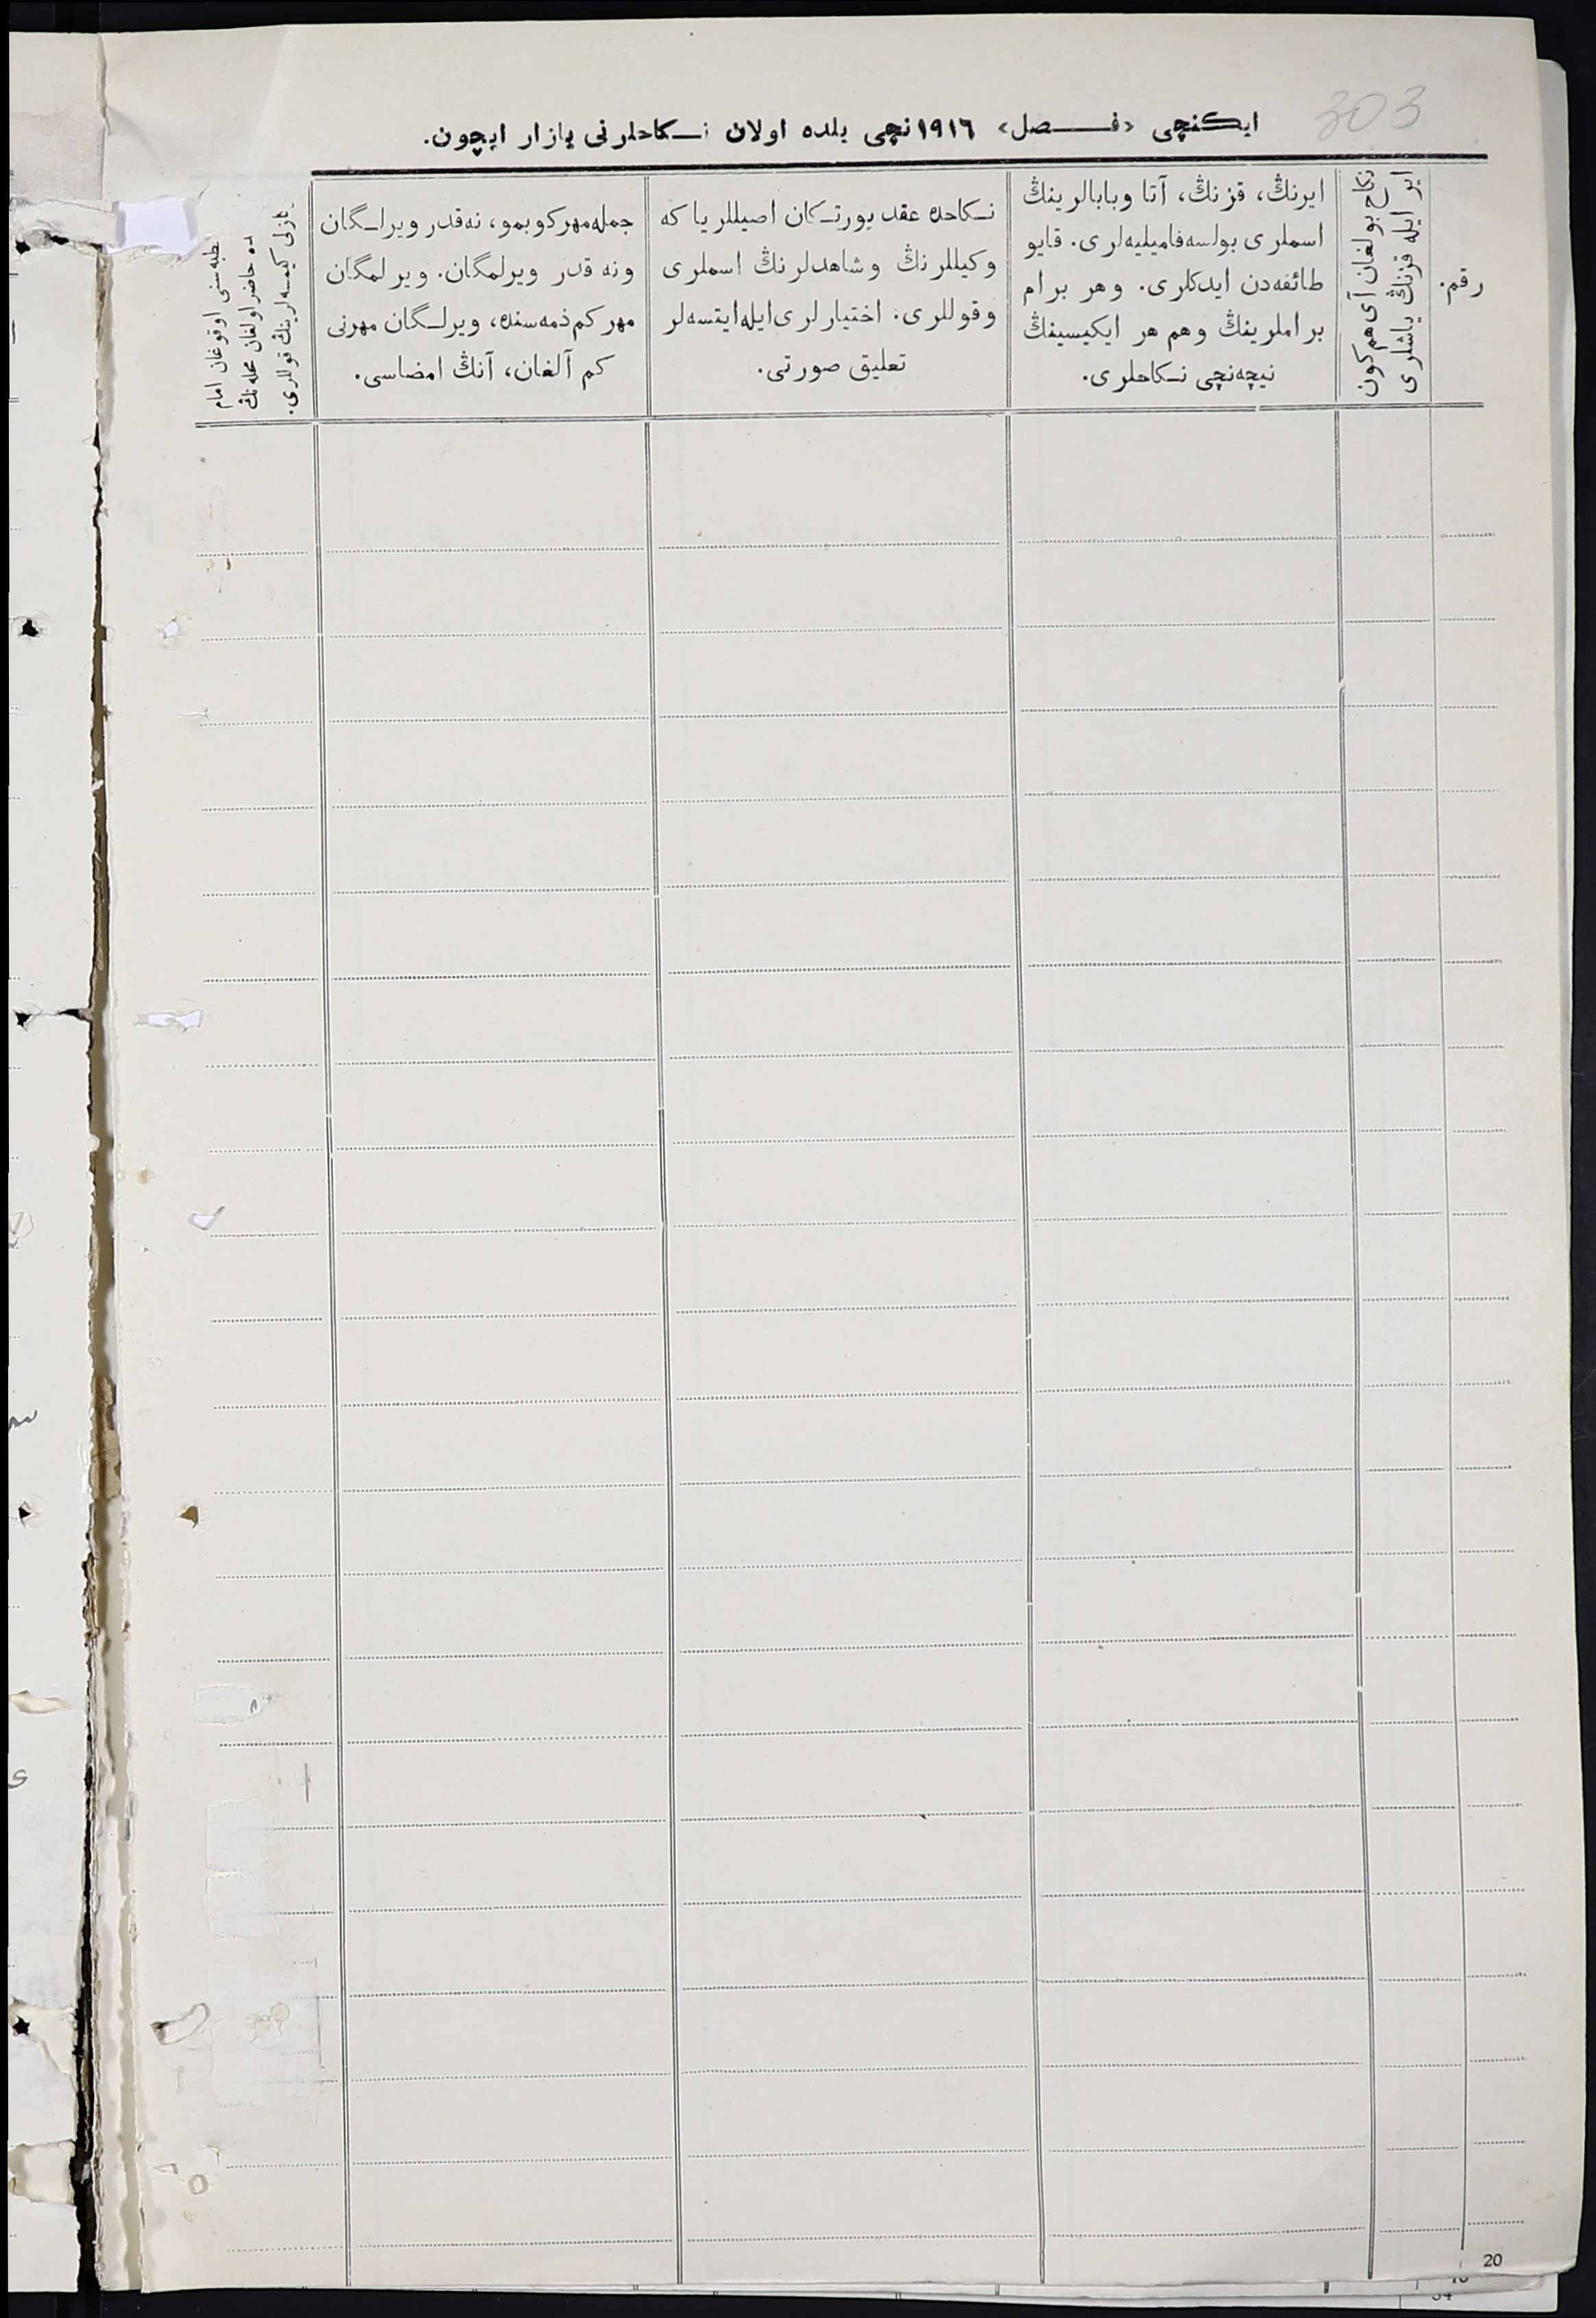 303
ایكنچی «فصل» ١٩١٦نچی یلده اولان نكاحلرنی یازار ایچون.
رقم.
نكاح بولغان آی هم كون
ایر ایله قزنڭ یاشلری
ایرنڭ، قزنڭ، آتا وبابالرینڭ
اسملری بولسه فامیلیه‌لری. قایو
طائفه‌دن ایدكلری. وهر برام
براملرینڭ وهم هر ایكیسینڭ
نیچه‌نچی نكاحلری.
نكاحده عقد یورتكان اصیللر یا كه
وكیللرنڭ وشاهدلرنڭ اسملری
وقوللری: اختیارلری ایله ایتسه‌لر
تعلیق صورتی.
جمله مهر كوبمو، نه‌قدر ویرلگان
ونه قدر ویرلمگان. ویرلمگان
مهر كم ذمه‌سنده، ویرلگان مهرنی
كم آلغان، آنڭ امضاسی.
خطبه‌سنی اوقوغان امام
حاضر اولغان محله‌نڭ
كیمسه‌لرینڭ قوللری.
20